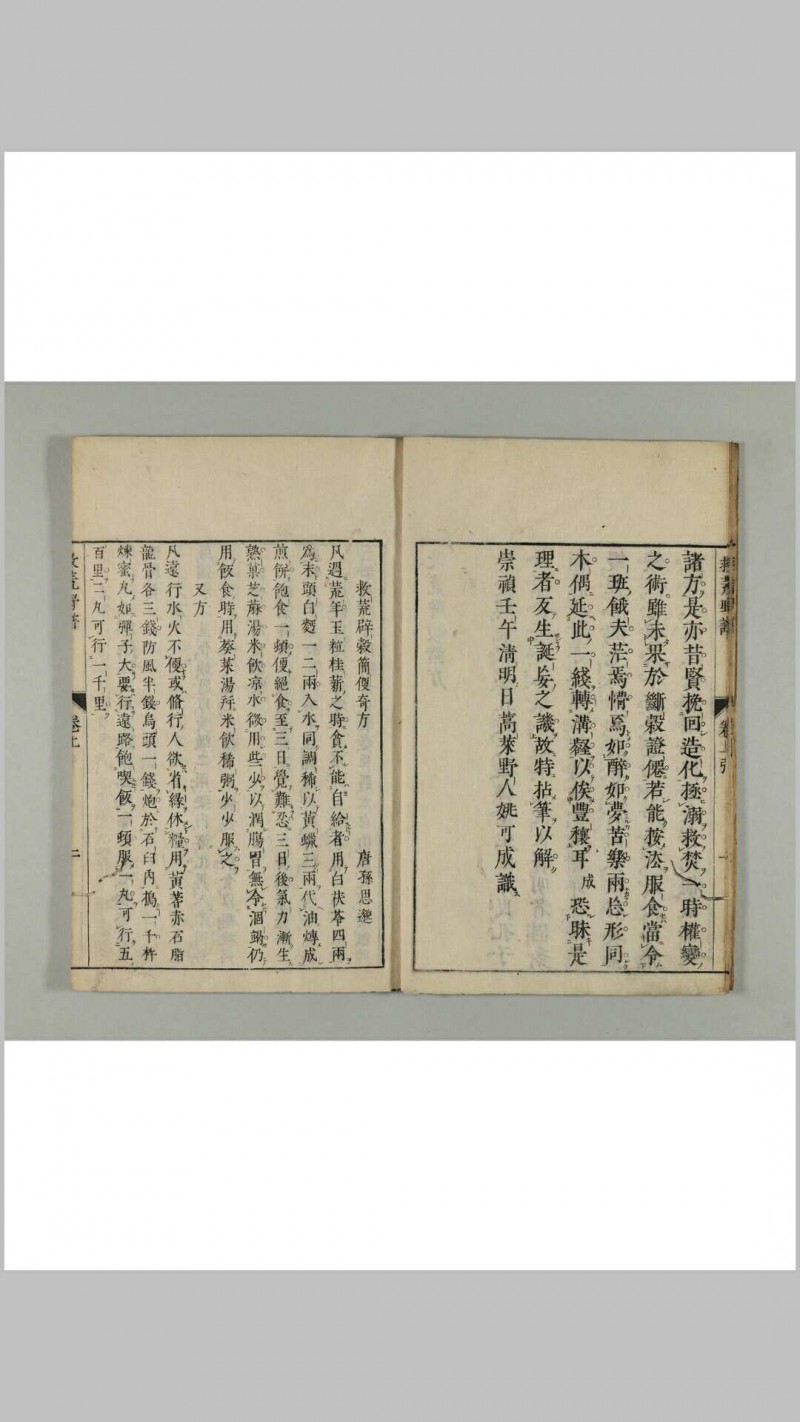 救荒野譜
卷上 引
諸方是亦昔賢挽回造化拯溺救焚一時權變
之術雖未果於斷穀證僊若能按法服食當令
一班餓夫茫焉愲焉如醉如夢苦樂兩忘形同
木偶延此一綫轉溝壑以俟豐穰耳成恐昧是
理者反生誕妄之譏故特拈筆以解
崇禎壬午清明日蒿萊野人姚可成識
救荒辟穀簡便奇方 唐孫思邈
凡遇荒年玉粒桂薪之時食不能自給者用白茯苓四兩
爲末頭白麪一二兩入水同調稀以黃蠟三兩代油煿成
煎餅飽食一頓便絕食至三日覺難忍三日後氣力漸生
熟菓芝蔴湯米飲涼水微用些少以潤腸胃無令涸竭仍
用飯食時用葵菜湯幷米飲稀粥少少服之
又方
凡遠行水火不便或脩行人欲省緣休糧用黃芪赤石脂
龍骨各三錢防風半錢烏頭一錢炮於石臼內搗一千杵
煉蜜丸如彈子大要行遠路飽喫飯一頓服一丸可行五
百里二丸可行一千里
救荒野譜
卷上
二